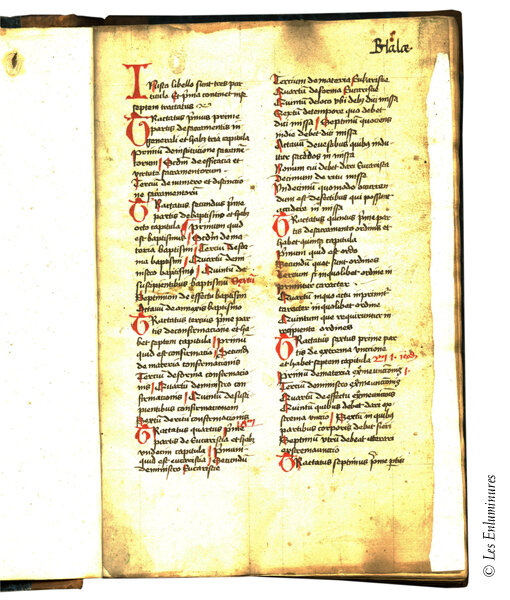 Blalæ
In isto libello sunt tres par
ticule Et pria continet in se
septem tractatus
Tractatus primus prime
partis de sacramentis in
generali et habz tria capitula
Primum de institucione sacame
torum Scdm de efficatia et
virtute sacramentorum
Tercium de numero et distinccio
ne sacramentorum
Tractatus secundus prime
partis de baptismo et habz
octo capitula Primum quid
est baptismus Scdm de ma
teria baptismi Tercium de for
ma baptismi Quartum de mi
nistro baptismi Quintum de
suscipientibus baptismum Sextum
Septimum de effectu baptismi
Octavum de baptismo
Tractatus tercius prime par
tis de confirmacione et ha
bet septem capitula Primum
quid est confirmacio Secundum
de materia confirmacionis
Tercium de forma confirmacio
nis Quartum de ministro con
firmacionis Quintum de susci
pientibus confirmacionem
confirmacionis
Tractatus quartus prime
partis de Eucaristia et habz
undecim capitula Primum
quid est eucristia Secundum
de ministro Eucaristie
Tercium de materia Eukaristie
Quartum de forma Eucaristie
Quintum de loco ubi debet dici missa
Sextum de tempore quo debet
dici missa Septimum quociens
in die debet dici missa
Octavum de vestibus quibus indu
itur sacerdos in missa
Nonum cui debet dari Eucaristia
Decimum de ritu missa
Undecimum quomodo occurren
dum est defectibus qui possunt
accidere in missa
Tractatus quintus prime par
tis de sacramento ordinis et
habet quinque capitula
Primum quid est ordo
Secundum quot sunt ordines
Tercium si in quolibet ordine im
primitur caracter
Quartum in quo actu imprimitur
caracter in quolibet ordine
Quintum que requiruntur in
recipiente ordines
Tractatus sextus prime par
tis de extrema unccione
et habet septem capitula
Primum de materia extreme unccionis
Tercium de ministro extreme unccionis
Quartum de effectu extreme unccionis
Quintum quibus debet dari ex
trema unctio Sextum in quibus
partibus corporis debet fieri
Septimum utrum debeat iterari
extrema unctio
Tractatus septimus prime partis
© Les Enluminures